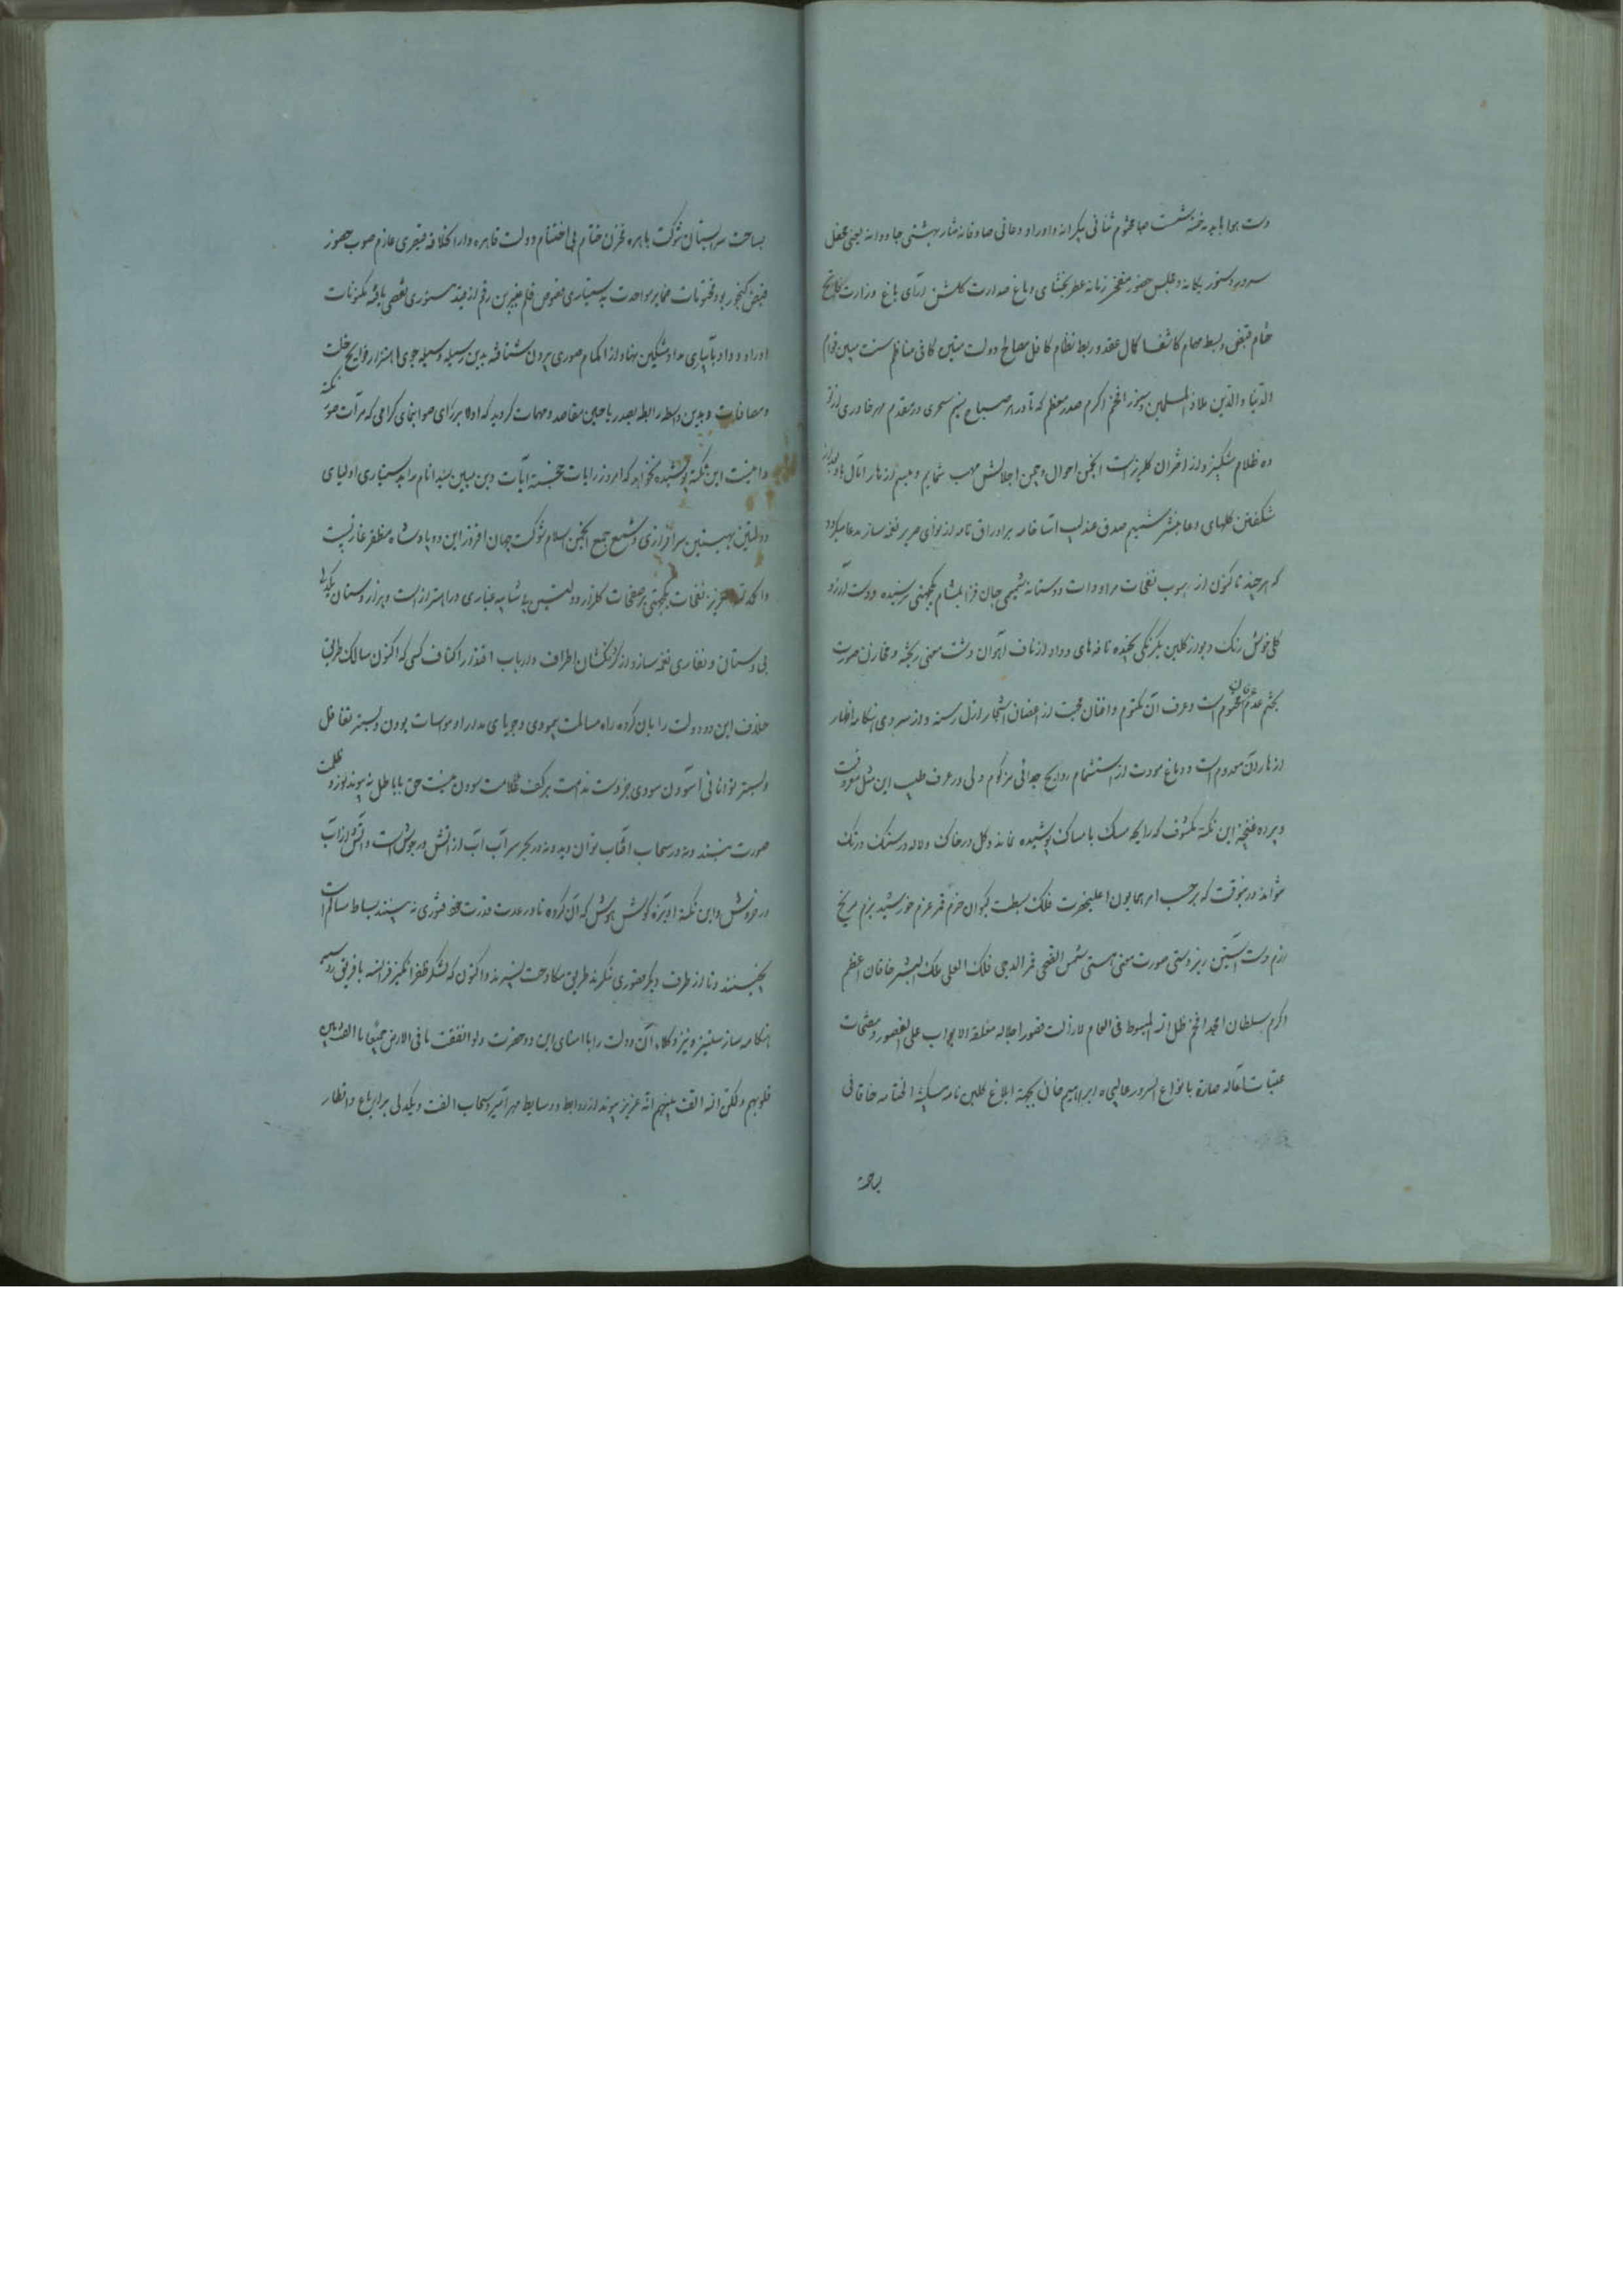 دست هوا باید نه خسته مختوم ثنائی بیکرانه و اوراد دعائی صادقانه نثار بهشتی جاودانه یعنی محفل
سرور دستور یگانه و مجلس حضور مفخر زمانه عطر بخشای دماغ صدارت گلشن آرای باغ وزارت
ختام قبض و بسط مهام کاشف اکمال عقد و ربط نظام کافل مصالح دولت متین کافی مناظم سنت مبین قوام
الدنیا والدین ملاذ المسلمین دستور افخم اکرم صدر معظم که تا در هر صباح نسیم سحری در مقدم مهر خاوری از
ده ظلام مشکبیز و از اختران گلریز است انجمن احوال و چمن اجلالش مهب شمایم و مبسم ازهار آمال باد
شگفتن گلهای دعا بنشر شمیم صدق عندلیب آسا خامه بر اوراق نامه از نوای صریر نغمه ساز مدعا میگردد
که هر چند تا کنون از هبوب نفحات مراودات دوستانه شمیمی جان فزا بمشام یکجهتی نرسیده و دست آرزو
گلی خوش رنگ و بو از گلبن یکرنگی نچیده نافه های وداد از ناف آهوان دشت معنی ریخته و مخازن صورت
بختم عدم مختوم است و عرف آن مکتوم و افنان محبت از اغصان اشجار ازل رسته و از سردی هنگامه اظهار
ازهار آن معدوم است و دماغ مودت از استشمام روایح جدائی مزکوم ولی در عرف طیب این مثل معروفست
و پرده غنچه این نکته مکشوف که رایحه مسک بامساک پوشیده نماند و گل در خاک و لاله در سنگ درنگ
نتواند درینوقت که بر حسب امر همایون اعلیحضرت فلک بسطت کیوان حزم قمر عزم خورشید بزم مریخ
رزم دست آستین زبردستی صورت معنی هستی شمس الضحی قمر الدجی فلک العلی ملک البشر خاقان اعظم
اکرم سلطان امجد افخم ظل الله المبسوط فی العالم لا زالت قصور اجلاله مغلقة الابواب علی القصور و مفتحات
عتبات اقباله صارة بانواع السرور عالیجاه ابراهیم خان بجهة ابلاغ گلبن نامه مسکیة الختامه خاقانی
بساحت
بساحت سرابستان شوکت باهره مخزن ختام بی اختتام دولت قاهره دار الخلافه قیصری عازم صوب حضور
فیض گنجور بود مختومات ضمایر مواحدت بدستیاری فصوص قلم عنبرین رقم از مستوری نقصی یافته مکنونات
اوراد وداد بآبیاری مداد مشکین نهاد از اکمام صوری برون شتافته بدین رسیله وسیله جوی اهتزاز روایح خلت
و مصافات و بدین واسطه رابطه بصدر ریاحین مقاصد و مهمات گردید که اولا بر رای صوابنمای گرامی که مرآت صور نکته
دانیست این نکته پوشیده نخواهد که امروز رایات خجسته آیات دین مبین سید انام را بدستیاری اولیای
دولتین بهیتین سرافرازی و شمع جمع انجمن اسلام شوکت جهان افروز این دو پادشاه مظفر غازیست
و الحمد لله العزیز نفحات یکجهتی بر صفحات گلزار دولتین بی شایبه غباری در اهتراز است و هزار دستان یکدلی
بی دستان و نغاری نغمه ساز و از گردنکشان اطراف و ارباب اقتدار اکناف کسی که اکنون سالک طریق
خلاف این دو دولت را بان گروه راه مسالمت پیمودی و جویای مدارا و مواسات بودن و بستر تغافل
و بستر توانائی آسودن سودی جز دست ندامت بر کف ملامت سودن نیست حق با باطل نه پیوندد و نور و ظلمت
صورت نبندد و نه در سحاب آفتاب توان دید و نه در بحر سراب آب از آتش در جوش است و آتش از آب
در خروش و این نکته آویزه گوش هوش که آن گروه تا در عدت و قدرت خود فتوری نه بینند بساط مسالمت
نچینند و تا از طرف دیگر قصوری ننگرند طریق مکاوحت نسپرند و اکنون که لشکر ظفر انگیز فرانسه با فریق روسیه
هنگامه ساز ستیزه نیز وکلاء آن دولت را با امنای این دو حضرت و لو انفقت ما فی الارض جمیعا ما الفت بین
قلوبهم ولکن الله الف بینهم انه عزیز پیوند از روابط و وسایط مهر آمیز و سحاب الفت و یکدلی بر ارباع و اقطار